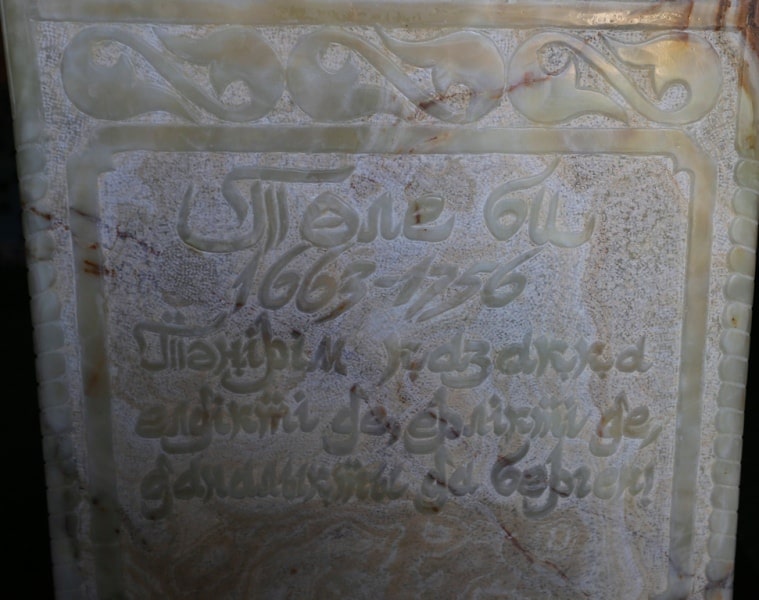 Төле би
1663-1756
Тәңірім қазаққа
елдікті де, ерлікті де,
даналықты да берген!